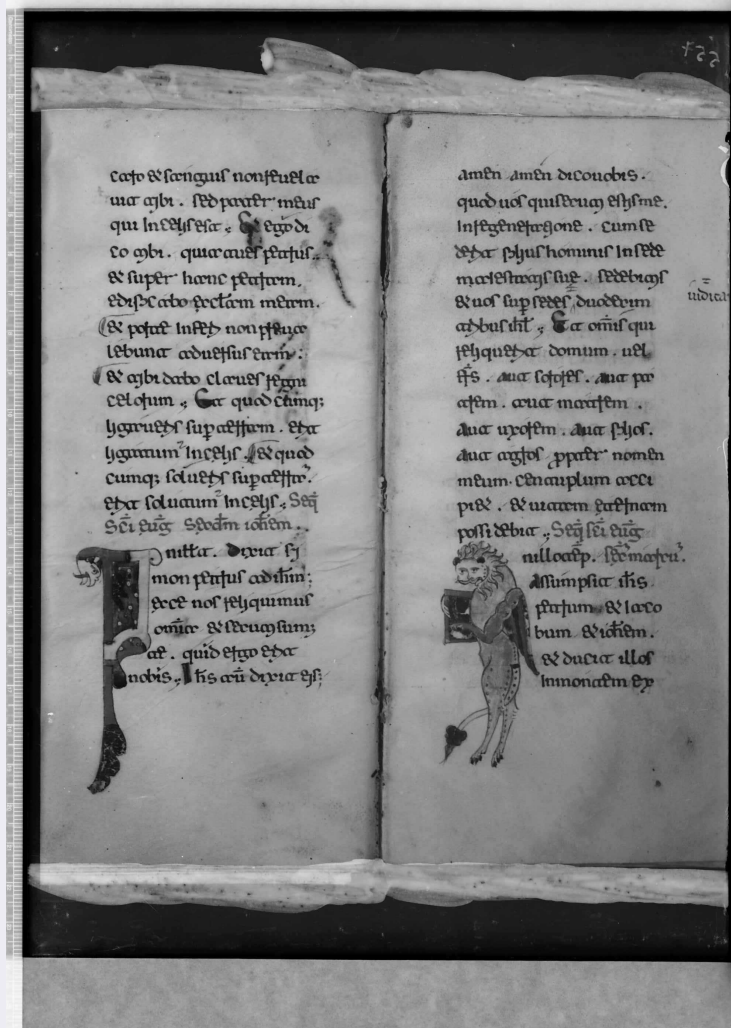 caro & sanguis non reuela
uit tibi. sed pater meus
qui in celis est. Et ego di
co tibi. quia tu es petrus.
& super hanc petram.
edificabo ecclam meam.
& porte inferi non preua
lebunt aduersus eam:
& tibi dabo claues regni
celorum. Et quodcumq;
ligaueris sup terram. erit
ligatum in celis. & quod
cumq; solueris sup terra.
erit solutum in celis. Seq̄
Sc̄i eug̃ Secdm ioħem.
In illt. Dixit si
mon petrus ad iħm:
ecce nos reliquimus
omia & secuti sum;
te. quid ergo erit
nobis. Iħs aū dixit eis:
amen amen dico uobis.
quod uos qui secuti estis me.
In regeneratione. cum se
derit filius hominis in sede
maiestatis sue. sedebitis
& uos sup sedes duodecim
iudica
tribus isrl. Et omīs qui
reliquerit domum. uel
fr̄s. aut sorores. aut pa
trem. aut matrem.
aut uxorem. aut filios.
aut agros ppter nomen
meum. centuplum acci
piet. & uitam eternam
possidebit. Seq̄ sc̄i eug̃
In illo tēp. sec̄ matheū.
Assumpsit iħs
petrum & iaco
bum & ioħem.
& ducit illos
in montem ex